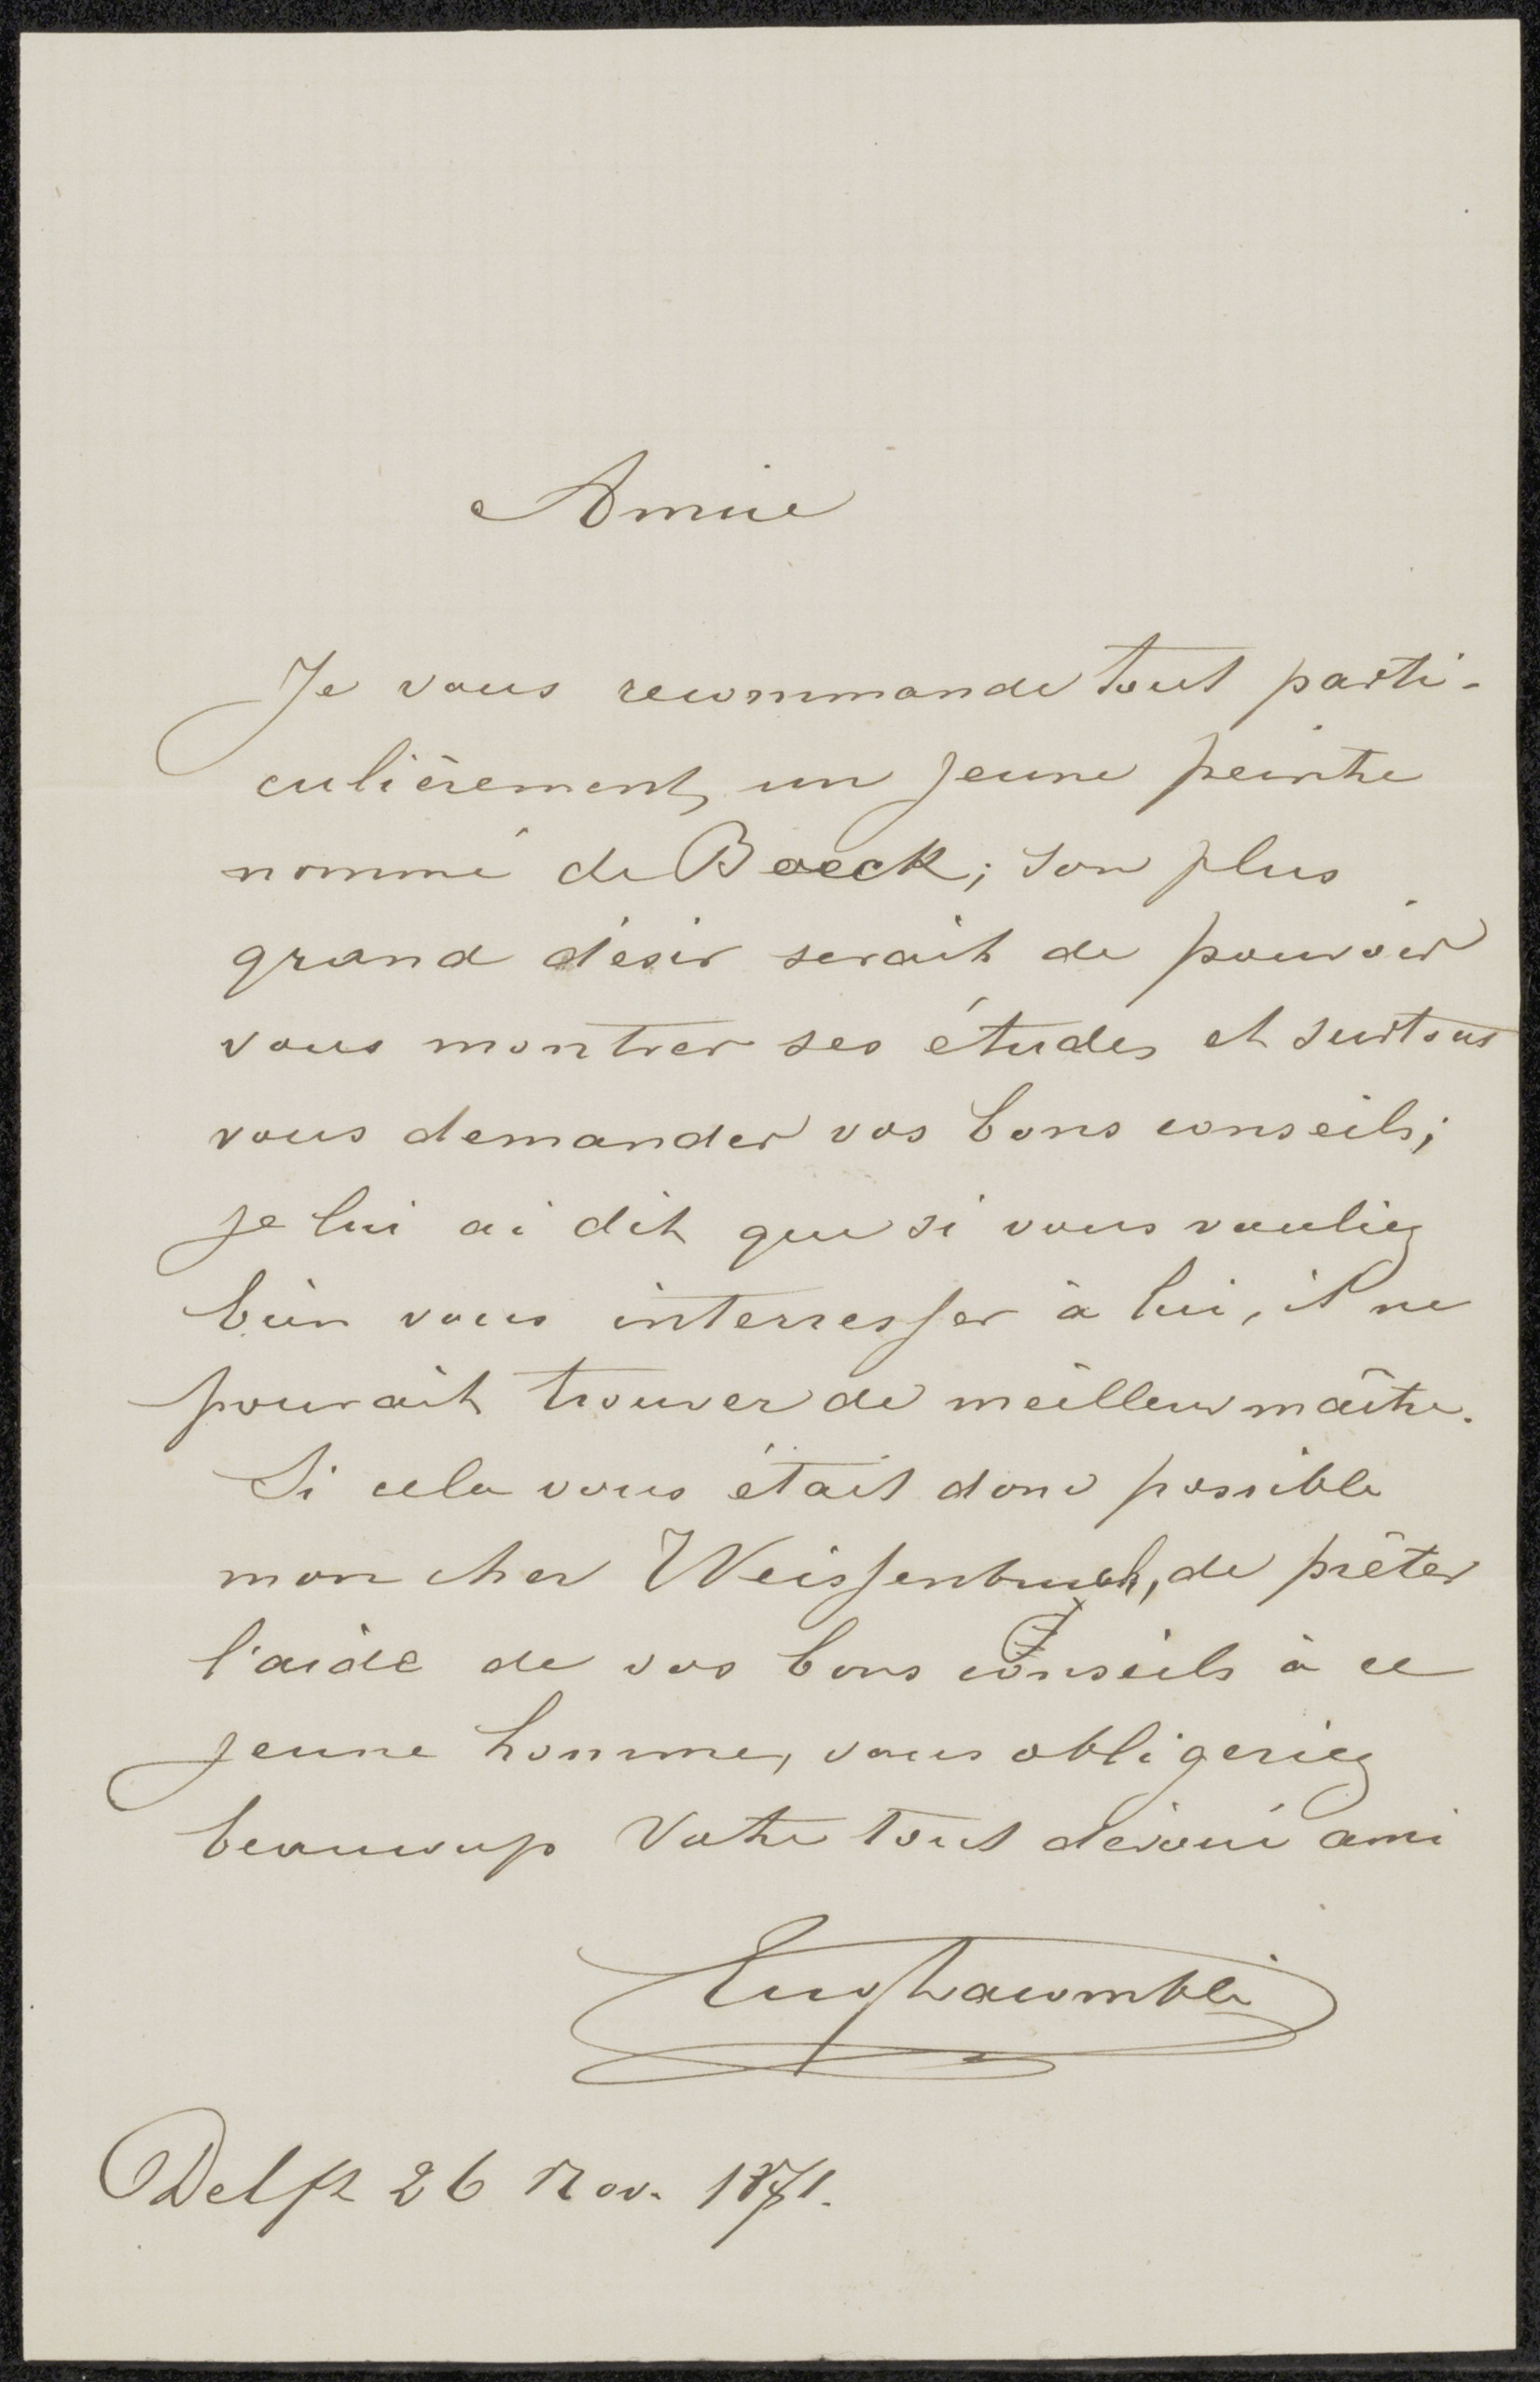 Amice
Je vous recommande tout parti-
culièrement, un jeune peintre
nommé de Boeck; son plus
grand désir serait de pouvoir
vous montrer ses études et surtout
vous demander vos bons conseils;
je lui ai dit que si vous vouliez
bien vous interresser à lui, il ne
pourait trouver de meilleur maître.
Si cela vous était donc possible
mon cher Weissenbruch, de prêter
l'aide de vos bons conseils à ce
jeune homme, vous obligeriez
beaucoup Votre tout dévoué ami
Eug Lacomblé
Delft 26 Nov. 1871.